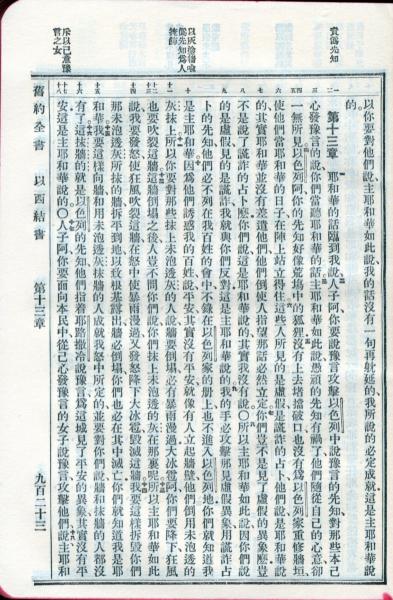 責僞先知
以灰塗牆喻
僞先知爲人
斥以己意豫
言之女
以你要對他們說主耶和華如此說我的話沒有一句再躭延的我所說的必定成就這是主耶和華說
的
第十三章 耶和華的話臨到我說人子阿你要說豫言攻擊以色列中說豫言的先知對那些本己
心發豫言的說你們當聽耶和華的話主耶和華如此說愚頑的先知有禍了他們隨從自己的心意卻
一無所見以色列阿你的先知好像荒塲中的狐狸沒有上去堵擋破口也沒有爲以色列家重修牆垣
使他們當耶和華的日子在陣上站立得住這些人所見的是虛假是謊詐的占卜他們說是耶和華說
的其實耶和華並沒有差遣他們他們倒使人指望那話必然立定你們豈不是見了虛假的異象麼豈
不是說了謊詐的占卜麼你們說這是耶和華說的其實我沒有說〇所以主耶和華如此說因你們說
的是虛假見的是謊詐我就與你們反對這是主耶和華說的我的手必攻擊那見虛假異象用謊詐占
卜的先知他們必不列在我百姓的會中不錄在以色列家的册上也不進入以色列地你們就知道我
是主耶和華因爲他們誘惑我的百姓說平安其實沒有平安就像有人立起牆壁他們倒用未泡透的
灰抹上所以你要對那些抹上未泡透灰的人說牆要倒塌必有暴雨漫過大冰雹阿你們要降下狂風
也要吹裂這牆這牆倒塌之後人豈不問你們說你們抹上未泡透的灰在那裏呢所以主耶和華如此
說我要發怒使狂風吹裂這牆在怒中使暴雨漫過又發怒降下大冰雹毀滅這牆我要這樣拆毀你們
那未泡透灰所抹的牆拆平到地以致根基露出牆必倒塌你們也必在其中滅亡你們就知道我是耶
和華我要這樣向牆和用未泡透灰抹牆的人成就我怒中所定的並要對你們說牆和抹牆的人都沒
有了這抹牆的就是以色列的先知他們指着耶路撒冷說豫言爲這城見了平安的異象其實沒有平
安這是主耶和華說的〇人子阿你要面向本民中從己心發豫言的女子說豫言攻擊他們說主耶和
舊約全書 以西結書 第十三章 九百二十三